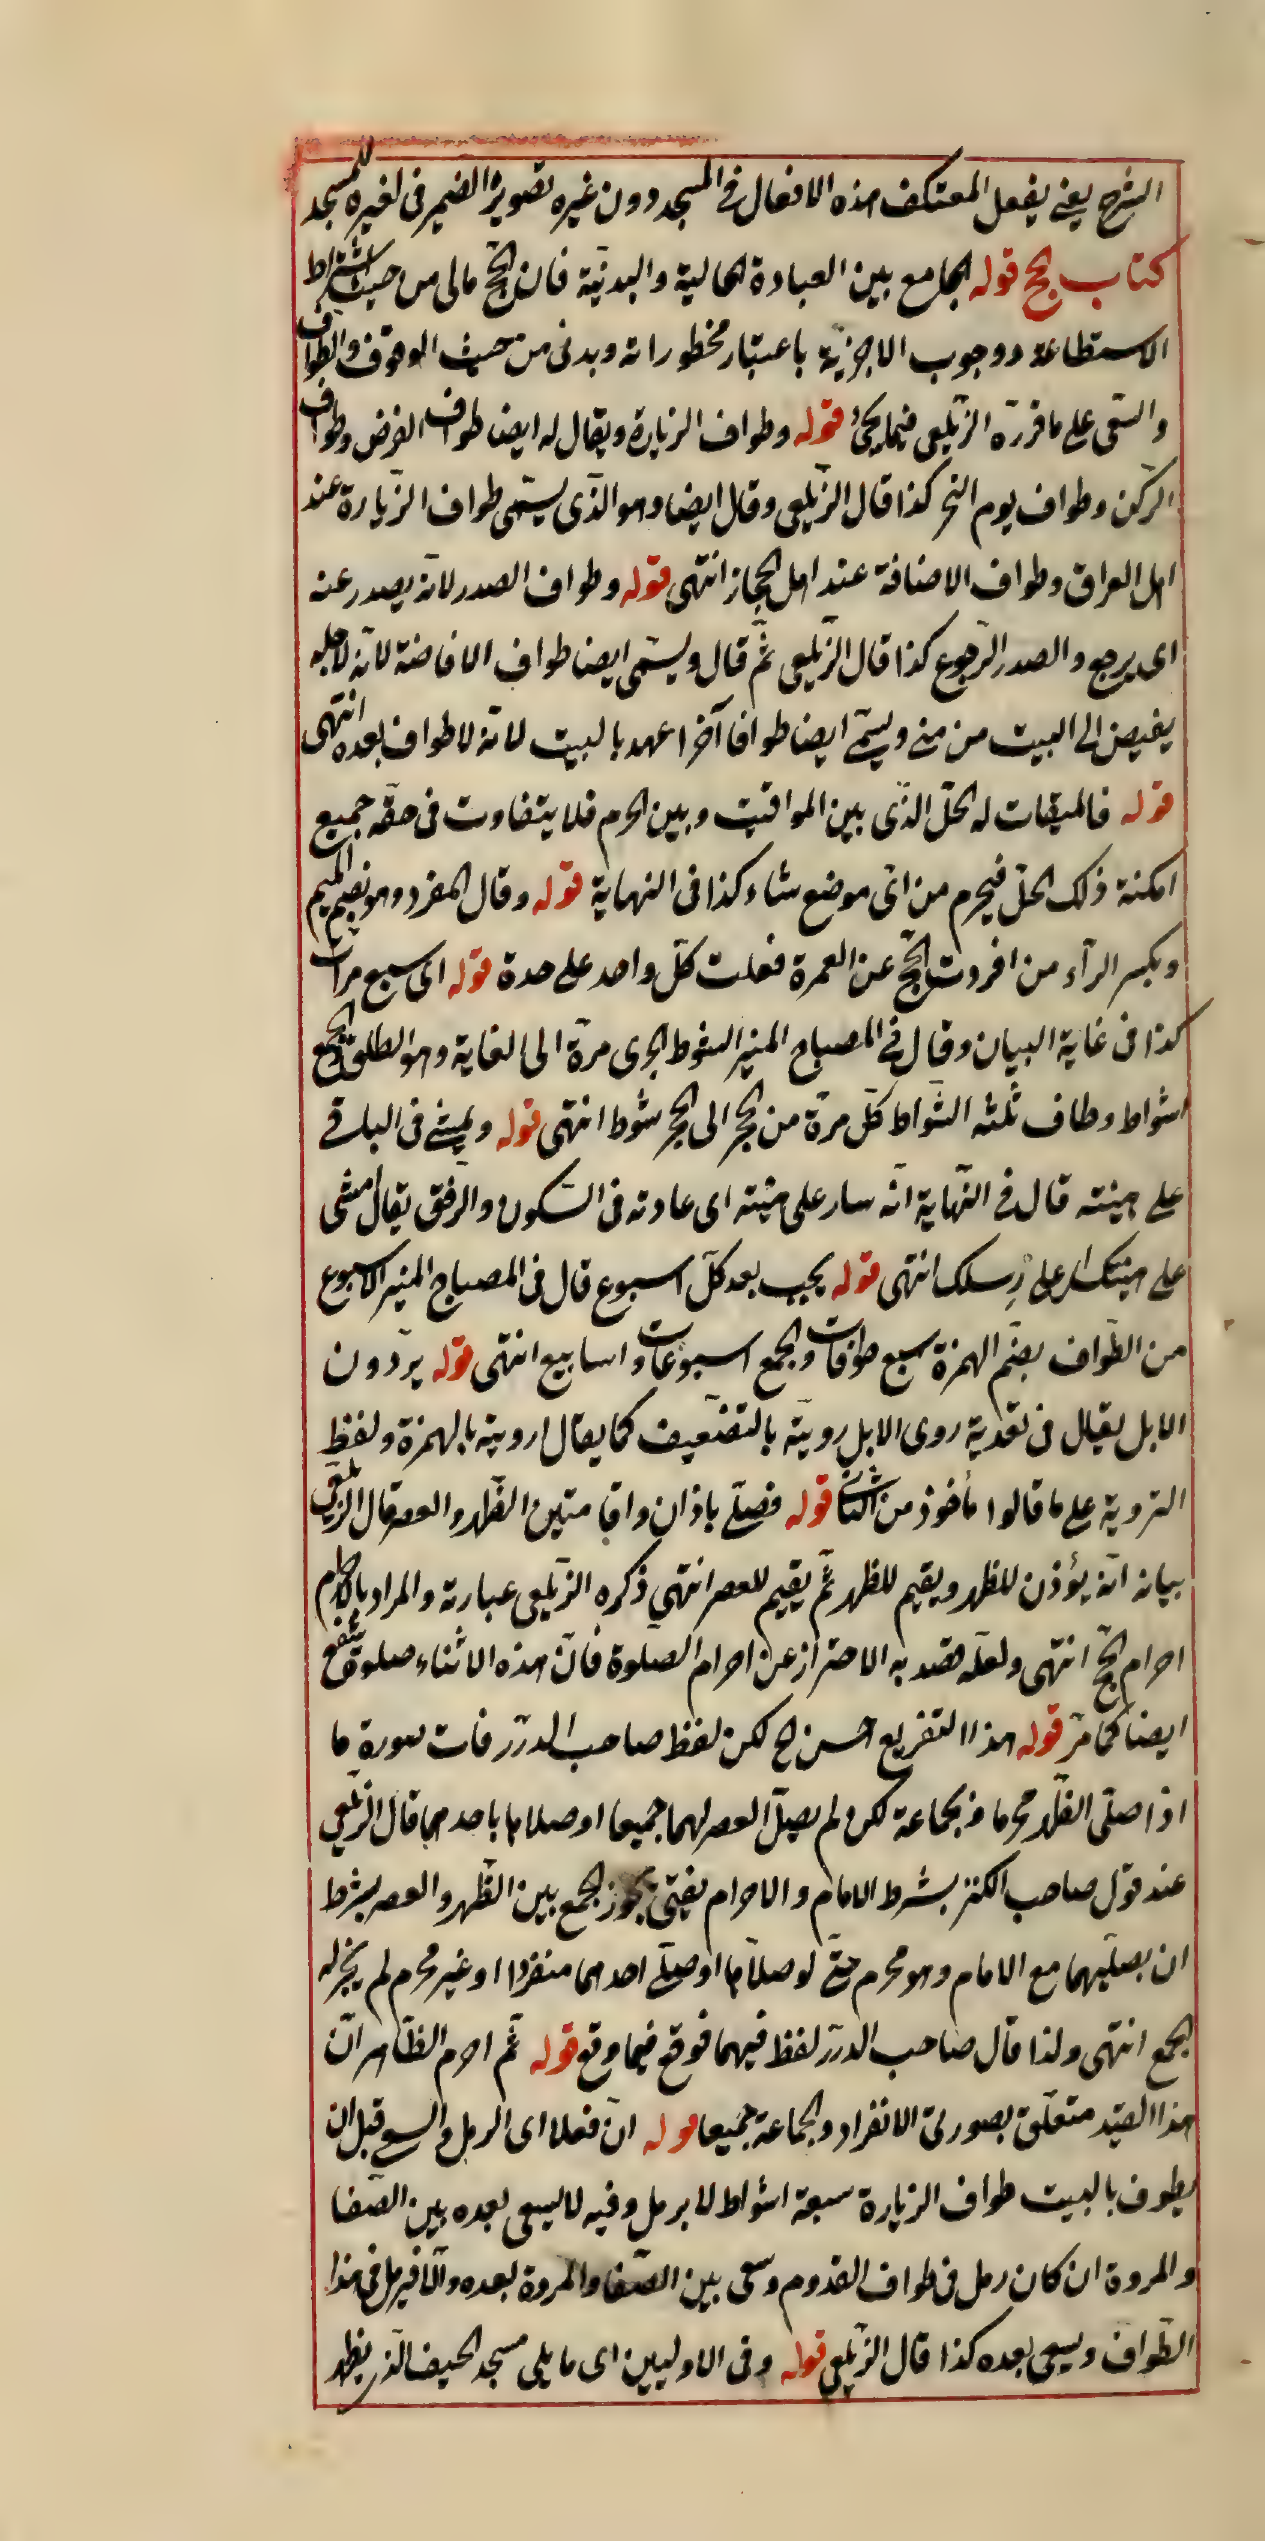 الشرح يعني يفعل المعتكف هذه الافعال في المسجد دون غيره تصوير الضمير في لغيره للمسجد
كتاب الحج قوله الجامع بين العبادة المالية والبدنية فان الحج مالى من حيث اشتراط
الاستطاعة ووجوب الاجزية باعتبار محظوراته وبدنى من حيث الوقوف والطواف
والسّعى على ما قررّه الزّيلعى فيما يجئ قوله وطواف الزيارة ويقال له ايضا طواف الفرض وطواف
الركن وطواف يوم النحر كذا قال الزّيلعى وقال ايضا وهو الذّى يسمّى طواف الزّيارة عند
اهل العراق وطواف الاضافة عند اهل الحجاز انتهى قوله وطواف الصدر لانّه يصدر عنه
اى يرجع والصدر الرّجوع كذا قال الزّيلعى ثمّ قال ويسمّى ايضا طواف الافاضة لانّه لاجله
يفيض الى البيت من منى ويسمّى ايضا طواف آخر عهد بالبيت لانّه لا طواف بعده انتهى
قوله فالميقات له الحلّ الذّى بين المواقيت وبين الحرم فلا يتفاوت فى حقّه جميع
امكنة ذلك الحلّ فيحرم من اىّ موضع شاء كذا فى النهاية قوله وقال المفرد وهو بضم الميم
وبكسر الرّاء من افردت الحجّ عن العمرة فعلت كلّ واحد على حدة قوله اى سبع مرّات
كذا فى غاية البيان وقال فى المصباح المنير الشوط الجرى مرّة الى الغاية وهو الطلق والجمع
اشواط وطاف ثلثه اشواط كلّ مرّة من الحجر الى الحجر شوط انتهى قوله ويمشى فى الباقى
على هينته قال فى النّهاية انّه سار على هينته اى عادته فى السّكون والرّفق يقال امشى
على هينتك اى على رِسلك انتهى قوله يجب بعد كلّ اسبوع قال فى المصباح المنير الاسبوع
من الطّواف بضمّ الهمزة سبع طوافات والجمع اسبوعات واسابيع انتهى قوله يروّون
الابل يقال فى تعدية روى الابل رويته بالتضعيف كما يقال ارويته بالهمزة ولفظ
التروية على ما قالوا مأخوذ من الثانى قوله فصلّى باذان واقامتين الظّهر والعصر قال الزيلعى
بيانه انّه يؤذن للظهر ويقيم للظهر ثمّ يقيم للعصر انتهى ذكره الزّيلعى عبارته والمراد بالاحرام
احرام الحجّ انتهى ولعلّه قصد به الاحتراز عن احرام الصّلوة فانّ هذه الاثناء صلوة شفع
ايضا كما مرّ قوله هذا التفريع احسن الخ لكن لفظ صاحب الدرر فات صورة ما
اذا صلّى الظّهر محرما وبجماعة لكن لم يصلّ العصر لهما جميعا او صلاها باحدهما قال الزّيلعى
عند قول صاحب الكنز بشرط الامام والاحرام يعنى يجوز الجمع بين الظّهر والعصر بشرط
ان يصلّيهما مع الامام وهو محرم حتّى لو صلاّهما او صلّى احدهما منفردا او غير محرم لم يجز له
الجمع انتهى ولذا قال صاحب الدرر لفظ فيهما فوقع فيما وقع قوله ثمّ احرم الظّاهر انّ
هذا القيد متعلّق بصورتى الانفراد والجماعة جميعا قوله ان فعلا اى الرمل والسعى قبل ان
يطوف بالبيت طواف الزيارة سبعة اشواط لا يرمل وفيه لا يسعى بعده بين الصّفا
والمروة ان كان رمل فى طواف القدوم وسعى بين الصّفا والمروة بعده والّا فيرمل فى هذا
الطّواف ويسعى بعده كذا قال الزّيلعى قوله وفى الاوليين اى ما يلى مسجد الخيف الذى يظهر